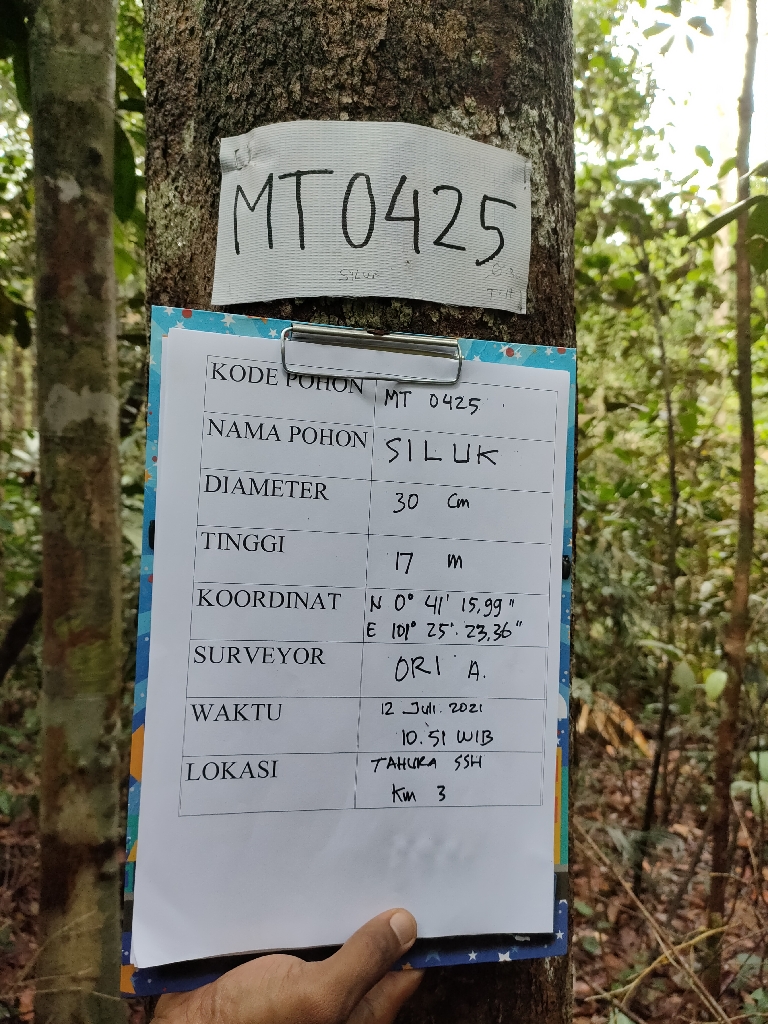 MT0425
SILUK
KODE POHON MT 0425
NAMA POHON SILUK
DIAMETER 30 Cm
TINGGI 17 m
KOORDINAT N 0° 41' 15,99"
E 101° 25'. 23,36"
SURVEYOR ORI A.
WAKTU 12 Juli. 2021
10.51 WIB
LOKASI TAHURA SSH
Km 3